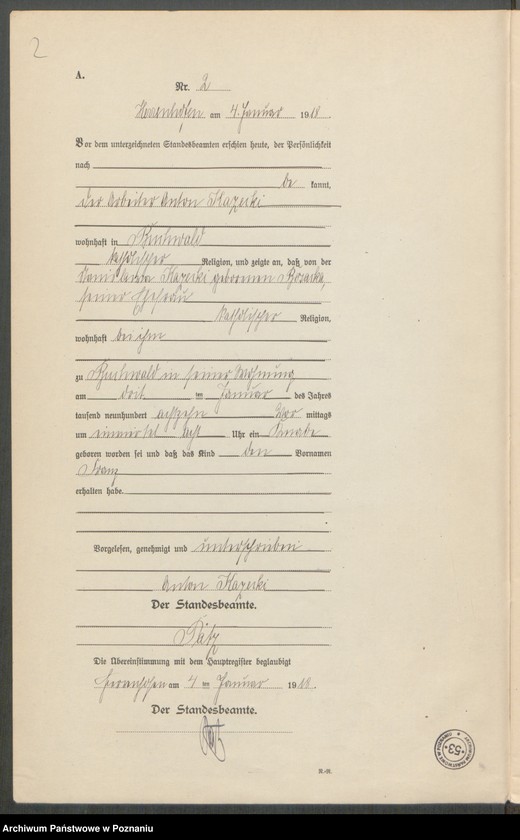 2
A.
Nr. 2
am 4. Januar 1918.
Vor dem unterzeichneten Standesbeamten erschien heute, der Persönlichkeit
nach
be kannt,
der Arbeiter Anton Kazecki
wohnhaft in Buchwald
katholischer Religion, und zeigte an, daß von der
Kazecki geborenen
seiner Ehefrau
katholischer Religion,
wohnhaft bei ihm
zu Buchwald in seiner Wohnung
am Januar des Jahres
tausend neunhundert achtzehn Vor mittags
um einviertel acht Uhr ein Knabe
geboren worden sei und daß das Kind den Vornamen
Franz
erhalten habe.
Vorgelesen, genehmigt und unterschrieben
Anton Kazecki
Der Standesbeamte.
Die Übereinstimmung mit dem Hauptregister beglaubigt
am 4 ten Januar 1918.
Der Standesbeamte.
R.-R.
53
Archiwum Państwowe w Poznaniu